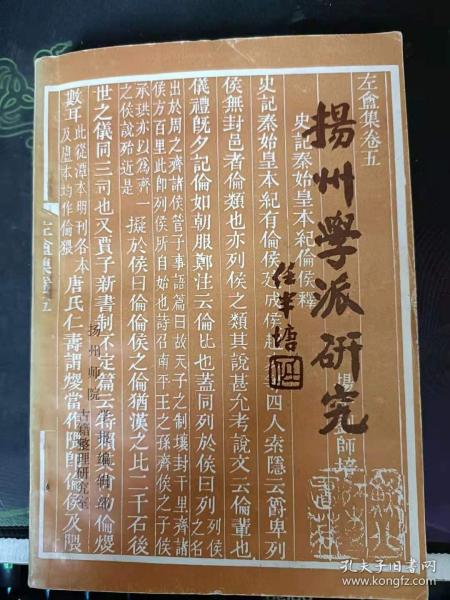 揚州學派研究
任半塘
左盦集卷五
史記秦始皇本紀倫侯釋
史記秦始皇本紀有倫侯建成侯趙
四人索隱云爵卑列
侯無封邑者倫類也亦列侯之類其說甚允考說文云倫輩也
儀禮旣夕記倫如朝服鄭注云倫比也蓋同列於侯曰列侯
出於周之齊諸侯管子事語篇曰故天子之制壤封千里齊諸
侯方百里此即列侯所自始也詩召南平王之孫齊侯之子侯
承珙亦以爲齊一
之侯說殆近是
擬於侯曰倫倫侯之倫猶漢之比二千石後
世之儀同三司也又賈子新書制不定篇云
倫㷼
數耳
此從潭本明刊各本
及盧本均作倫猥
唐氏仁壽謂㷼當作隈即倫侯及隈
左盦集卷五
扬州师院学报编辑部
古籍整理研究室
孔夫子旧书网